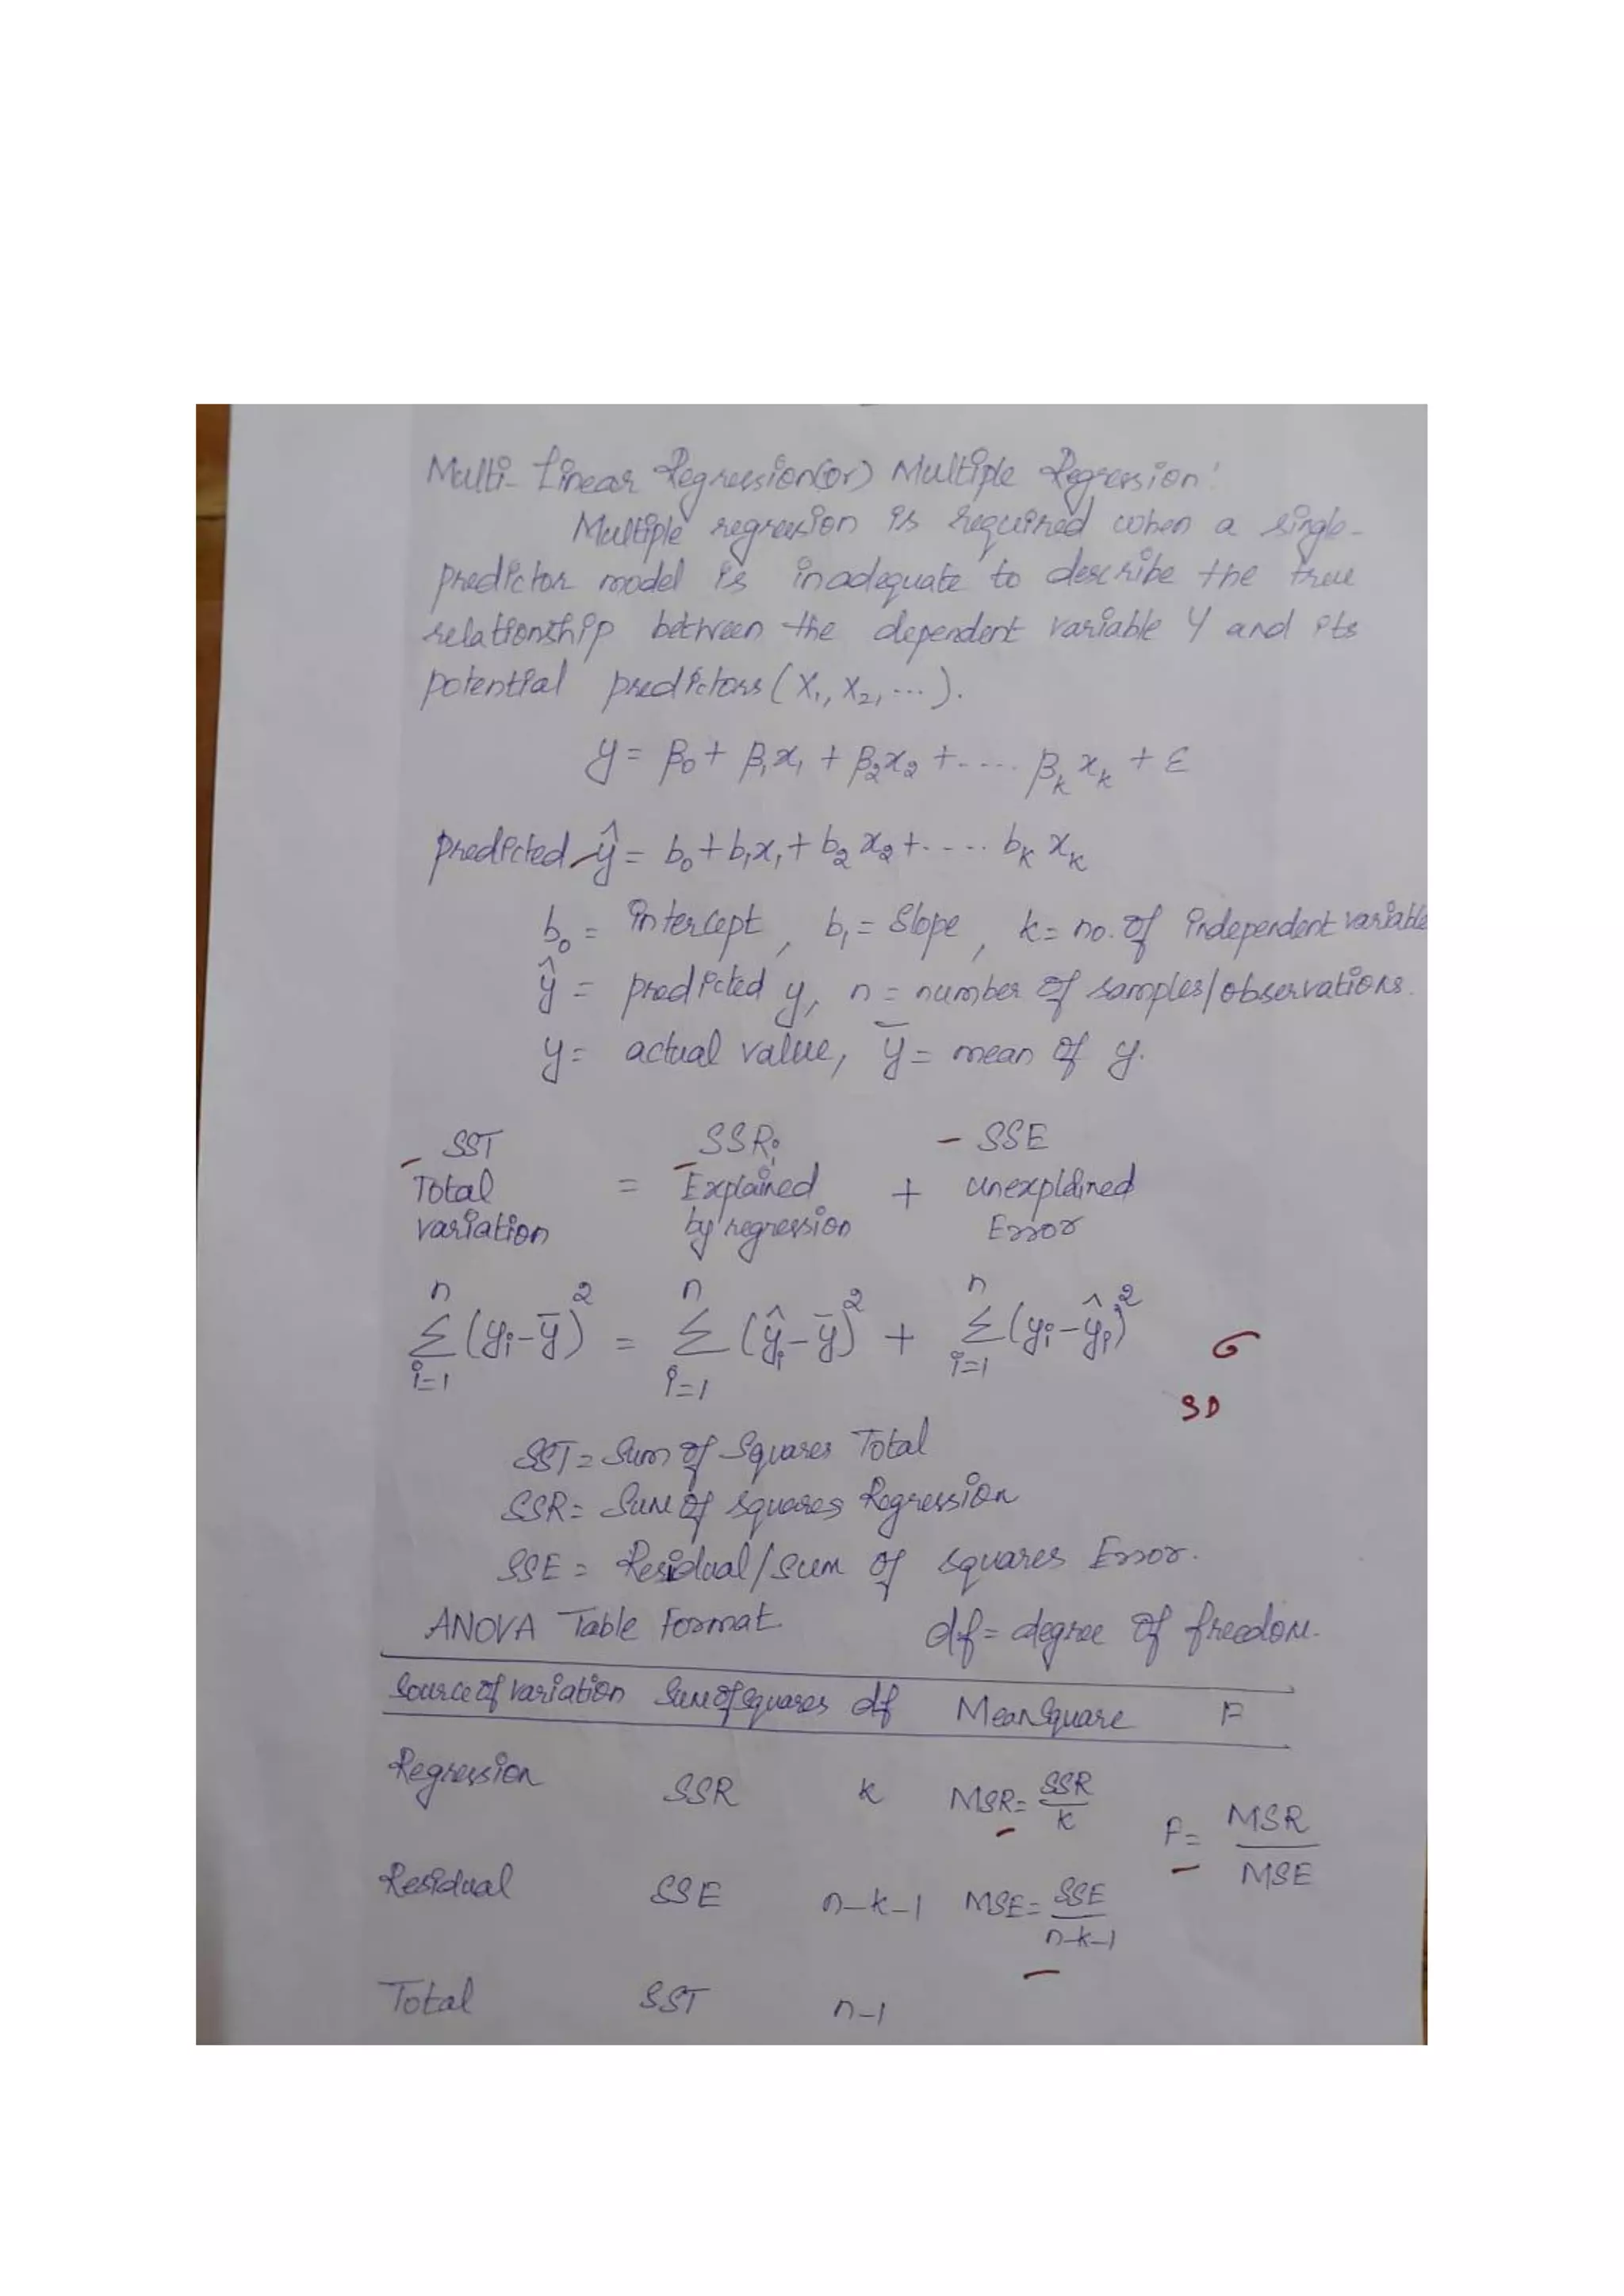 Multi-Linear Regression(or) Multiple Regression:
Multiple regression is required when a single-
predictor model is inadequate to describe the true
relationship between the dependent variable Y and its
potential predictors (X₁, X₂, ...).
y = β₀ + β₁x₁ + β₂x₂ + .... βₖ xₖ + ε
predicted - ŷ = b₀ + b₁x₁ + b₂x₂ + .... bₖ xₖ
b₀ = intercept, b₁ = slope, k = no. of independent variable
ŷ = predicted y, n = number of samples/observations.
y = actual value, ȳ = mean of y.
- SST SSR: - SSE
Total = - Explained + unexplained
variation by regression Error
n 2 n 2 n 2
Σ (yᵢ - ȳ) = Σ (ŷᵢ - ȳ) + Σ (yᵢ - ŷᵢ) σ
i=1 i=1 i=1
SD
SST = Sum of Squares Total
SSR = Sum of squares Regression
SSE = Residual/sum of squares Error.
ANOVA Table Format. df = degree of freedom.
Source of variation Sum of squares df Mean Square F
Regression SSR k MSR = SSR/k F = MSR/MSE
Residual SSE n-k-1 MSE = SSE/n-k-1
Total SST n-1